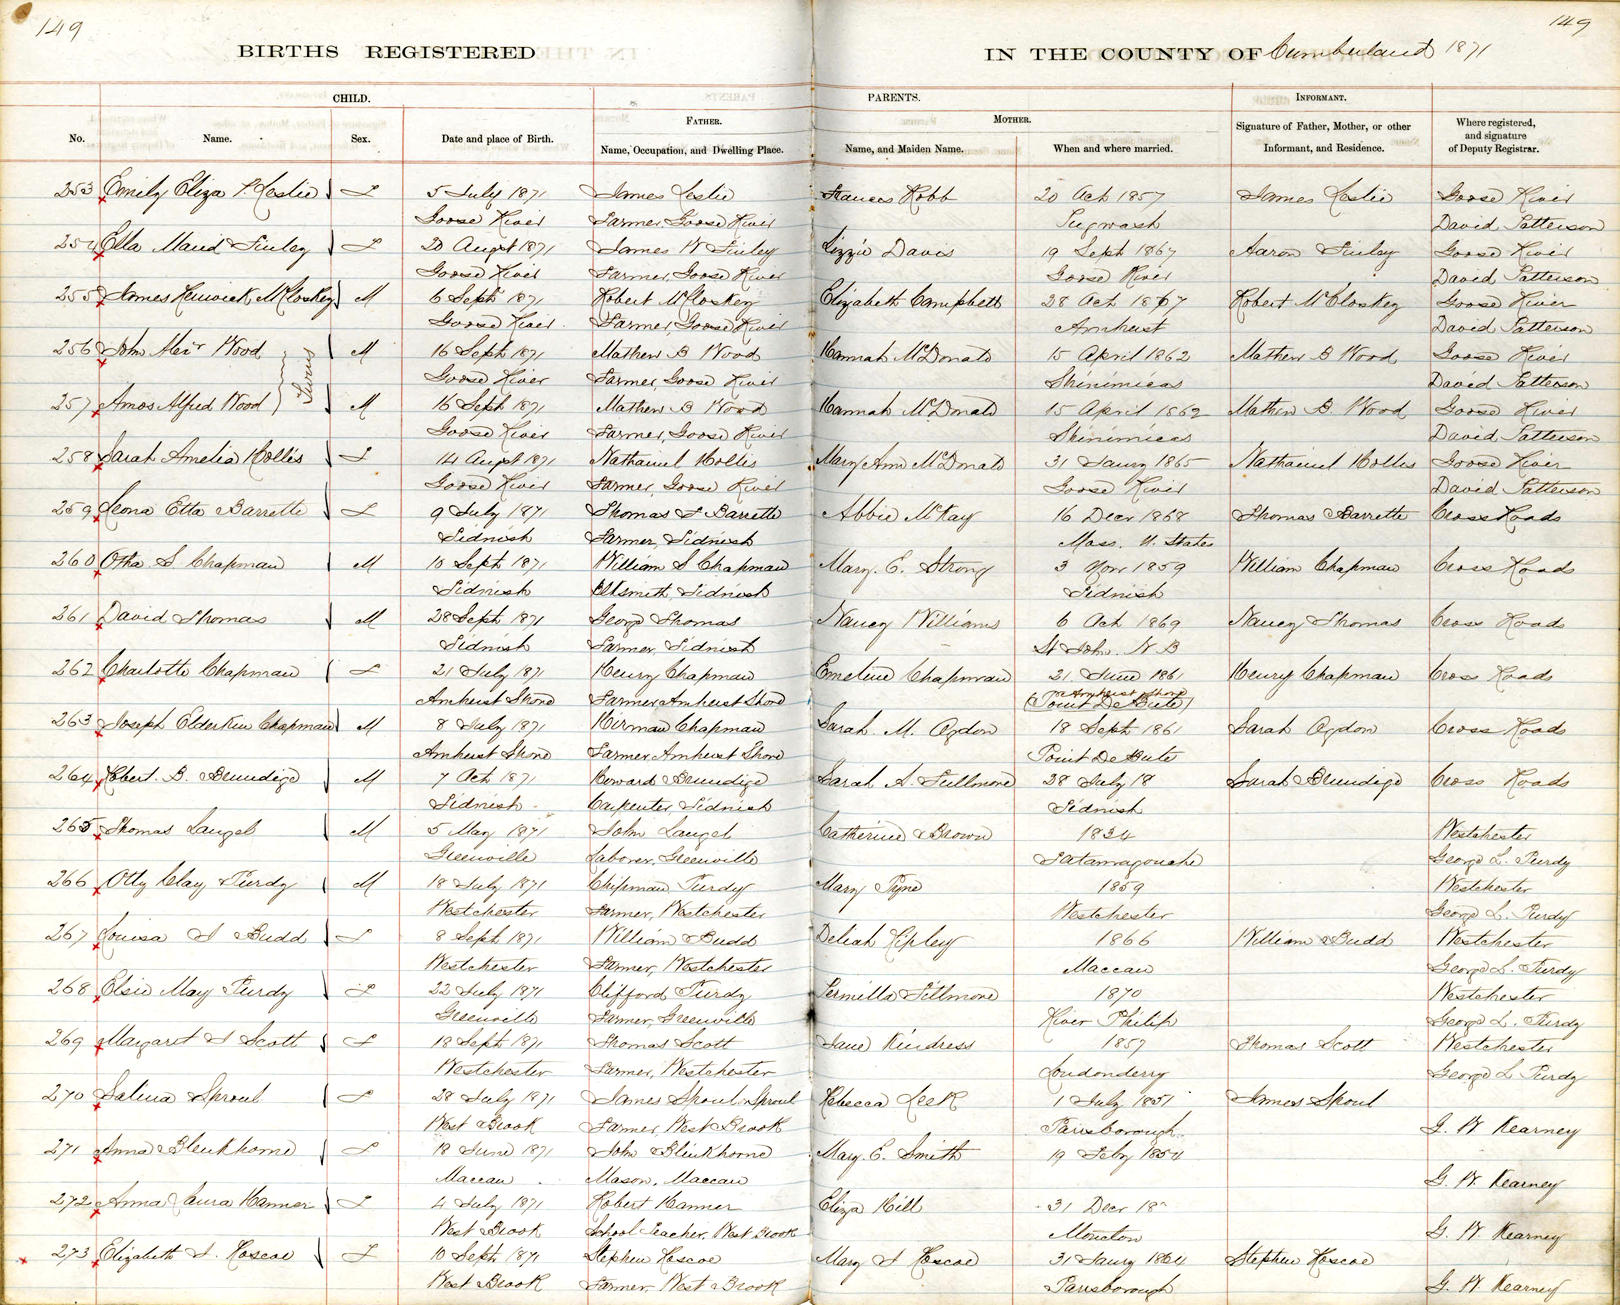 149
149
BIRTHS REGISTERED
IN THE COUNTY OF Cumberland 1871
CHILD.
PARENTS.
INFORMANT.
No.
Name.
Sex.
Date and place of Birth.
FATHER.
Name, Occupation, and Dwelling Place.
MOTHER.
Name, and Maiden Name.
When and where married.
Signature of Father, Mother, or other Informant, and Residence.
Where registered, and signature of Deputy Registrar.
253 Emily Eliza P. Leslie F 5 July 1871 James Leslie Frances Robb 20 Oct 1857 James Leslie Goose River
Goose River Farmer, Goose River Pugwash David Patterson
254 Ella Maud Finley F 20 Augst 1871 James W Finley Lizzie Davis 19 Sept 1867 Aaron Finley Goose River
Goose River Farmer, Goose River Goose River David Patterson
255 James Renwick McCloskey M 6 Sept 1871 Robert McCloskey Elizabeth Campbell 28 Oct 1867 Robert McCloskey Goose River
Goose River Farmer, Goose River Amherst David Patterson
256 John Wood Twins M 16 Sept 1871 Mathew B Wood Hannah McDonald 15 April 1862 Mathew B Wood Goose River
Goose River Farmer, Goose River Shinimicas David Patterson
257 Amos Alfred Wood M 16 Sept 1871 Mathew B Wood Hannah McDonald 15 April 1862 Mathew B. Wood Goose River
Goose River Farmer, Goose River Shinimicas David Patterson
258 Sarah Amelia Hollis F 14 Augst 1871 Nathaniel Hollis Mary Ann McDonald 31 Jany 1865 Nathaniel Hollis Goose River
Goose River Farmer, Goose River Goose River David Patterson
259 Leona Etta Barrette F 9 July 1871 Thomas F Barrette Abbie McKay 16 Decr 1868 Thomas Barrette Cross Roads
Tidnish Farmer, Tidnish Mass. U. States
260 Otha S. Chapman M 10 Sept 1871 William S Chapman Mary. E. Strong 3 Novr 1859 William Chapman Cross Roads
Tidnish Tidnish Tidnish
261 David Thomas M 28 Sept 1871 George Thomas Nancy Williams 6 Oct 1869 Nancy Thomas Cross Roads
Tidnish Farmer, Tidnish St John. N. B
262 Charlotte Chapman F 21 July 1871 Henry Chapman Emeline Chapman 21 June 1861 Henry Chapman Cross Roads
Amherst Shore Farmer Amherst Shore or Amherst Shore (Point De Bute)
263 Joseph Elderkin Chapman M 8 July 1871 Hirman Chapman Sarah. M. Ogdon 18 Sept 1861 Sarah Ogdon Cross Roads
Amherst Shore Farmer Amherst Shore Point De Bute
264 Robert. B. Brundige M 7 Oct 1871 Howard Brundige Sarah A. Fullmore 28 July 18 Sarah Brundige Cross Roads
Tidnish Carpenter, Tidnish Tidnish
265 Thomas M 5 May 1871 John Catherine Brown 1834 Westchester
Greenville Laborer, Greenville Tatamagouche George L. Purdy
266 Otty Clay Purdy M 18 July 1871 Chipman Purdy Mary Pyne 1859 Westchester
Westchester Farmer, Westchester Westchester George L. Purdy
267 Louisa J Budd F 8 Sept 1871 William Budd Deliah Ripley 1866 William Budd Westchester
Westchester Farmer, Westchester Maccan George L. Purdy
268 Elsie May Purdy F 22 July 1871 Clifford Purdy Permilla Fillmore 1870 Westchester
Greenville Farmer, Greenville River Philip George L. Purdy
269 Margaret J Scott F 18 Sept 1871 Thomas Scott Jane Kindress 1857 Thomas Scott Westchester
Westchester Farmer, Westchester Londonderry George L Purdy
270 Salina Sproul F 28 July 1871 James Sproul Rebecca Leek 1 July 1851 James Sproul
West Brook Farmer, West Brook Parrsborough G. W Kearney
271 Anna Blenkhorne F 18 June 1871 John Blenkhorne Mary. E. Smith 19 Feby 1854
Maccan Mason, Maccan G. W. Kearney
272 Anna Laura Hanner F 4 July 1871 Robert Hanner Eliza Hill 31 Decr 18
West Brook School Teacher, West Brook Moncton G. W Kearney
273 Elizabeth J. Roscoe F 10 Sept 1871 Stephen Roscoe Mary J Roscoe 31 Jany 1864 Stephen Roscoe
West Brook Farmer, West Brook Parrsborough G. W Kearney